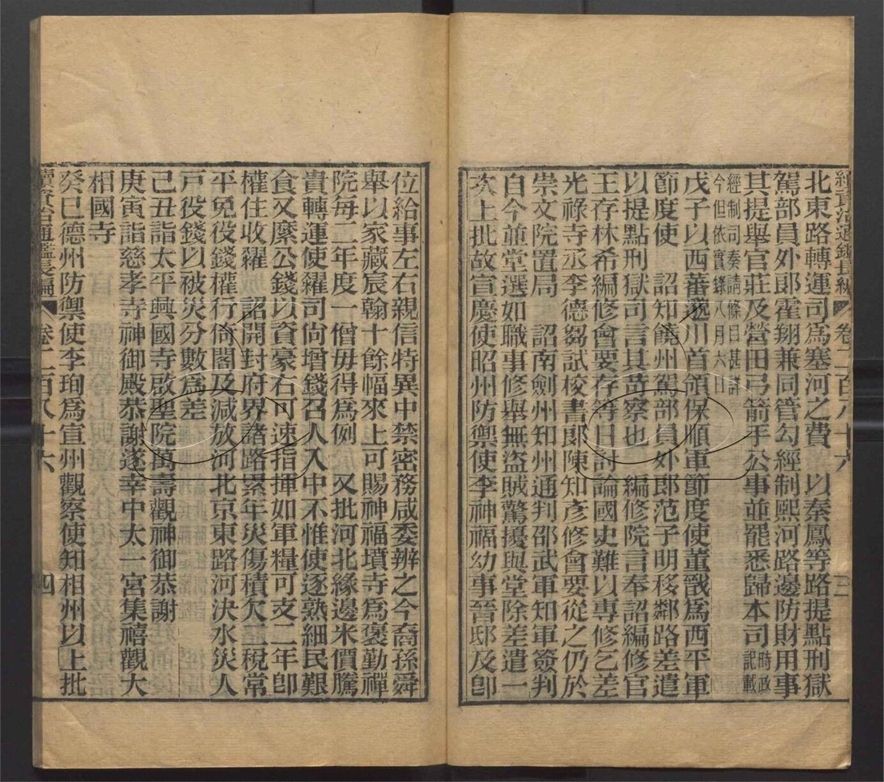 續資治通鑑長編 卷二百八十六
北東路轉運司爲塞河之費 以秦鳳等路提點刑獄
駕部員外郎霍翔兼同管勾經制熙河路邊防財用事
其提舉官莊及營田弓箭手公事並罷悉歸本司時政記載
經制司奏請條目甚詳
今但依實錄八月六日
戊子以西蕃邈川首領保順軍節度使董戩爲西平軍
節度使 詔知饒州駕部員外郎范子明移鄰路差遣
以提點刑獄司言其苛察也 編修院言奉詔編修官
王存林希編修會要存等日討論國史難以專修乞差
光祿寺丞李德芻試校書郎陳知彥修會要從之仍於
崇文院置局 詔南劍州知州通判邵武軍知軍簽判
自今並堂選如職事修舉無盜賊驚擾與堂除差遣一
次上批故宣慶使昭州防禦使李神福幼事晉邸及卽
位給事左右親信特異中禁密務咸委辨之今裔孫舜
舉以家藏宸翰十餘幅來上可賜神福墳寺爲褒勤禪
院每二年度一僧毋得爲例 又批河北緣邊米價騰
貴轉運使糴司尙增錢召人入中不惟使逐熟細民艱
食又縻公錢以資豪右可速指揮如軍糧可支二年卽
權住收糴 詔開封府界諸路累年災傷積欠 稅常
平免役錢權行倚閣及減放河北京東路河決水災人
戸役錢以被災分數爲差
己丑詣太平興國寺啟聖院萬壽觀神御恭謝
庚寅詣慈孝寺神御殿恭謝遂幸中太一宮集禧觀大
相國寺
癸巳德州防禦使李珣爲宣州觀察使知相州以上批
續資治通鑑長編 卷二百八十六 四